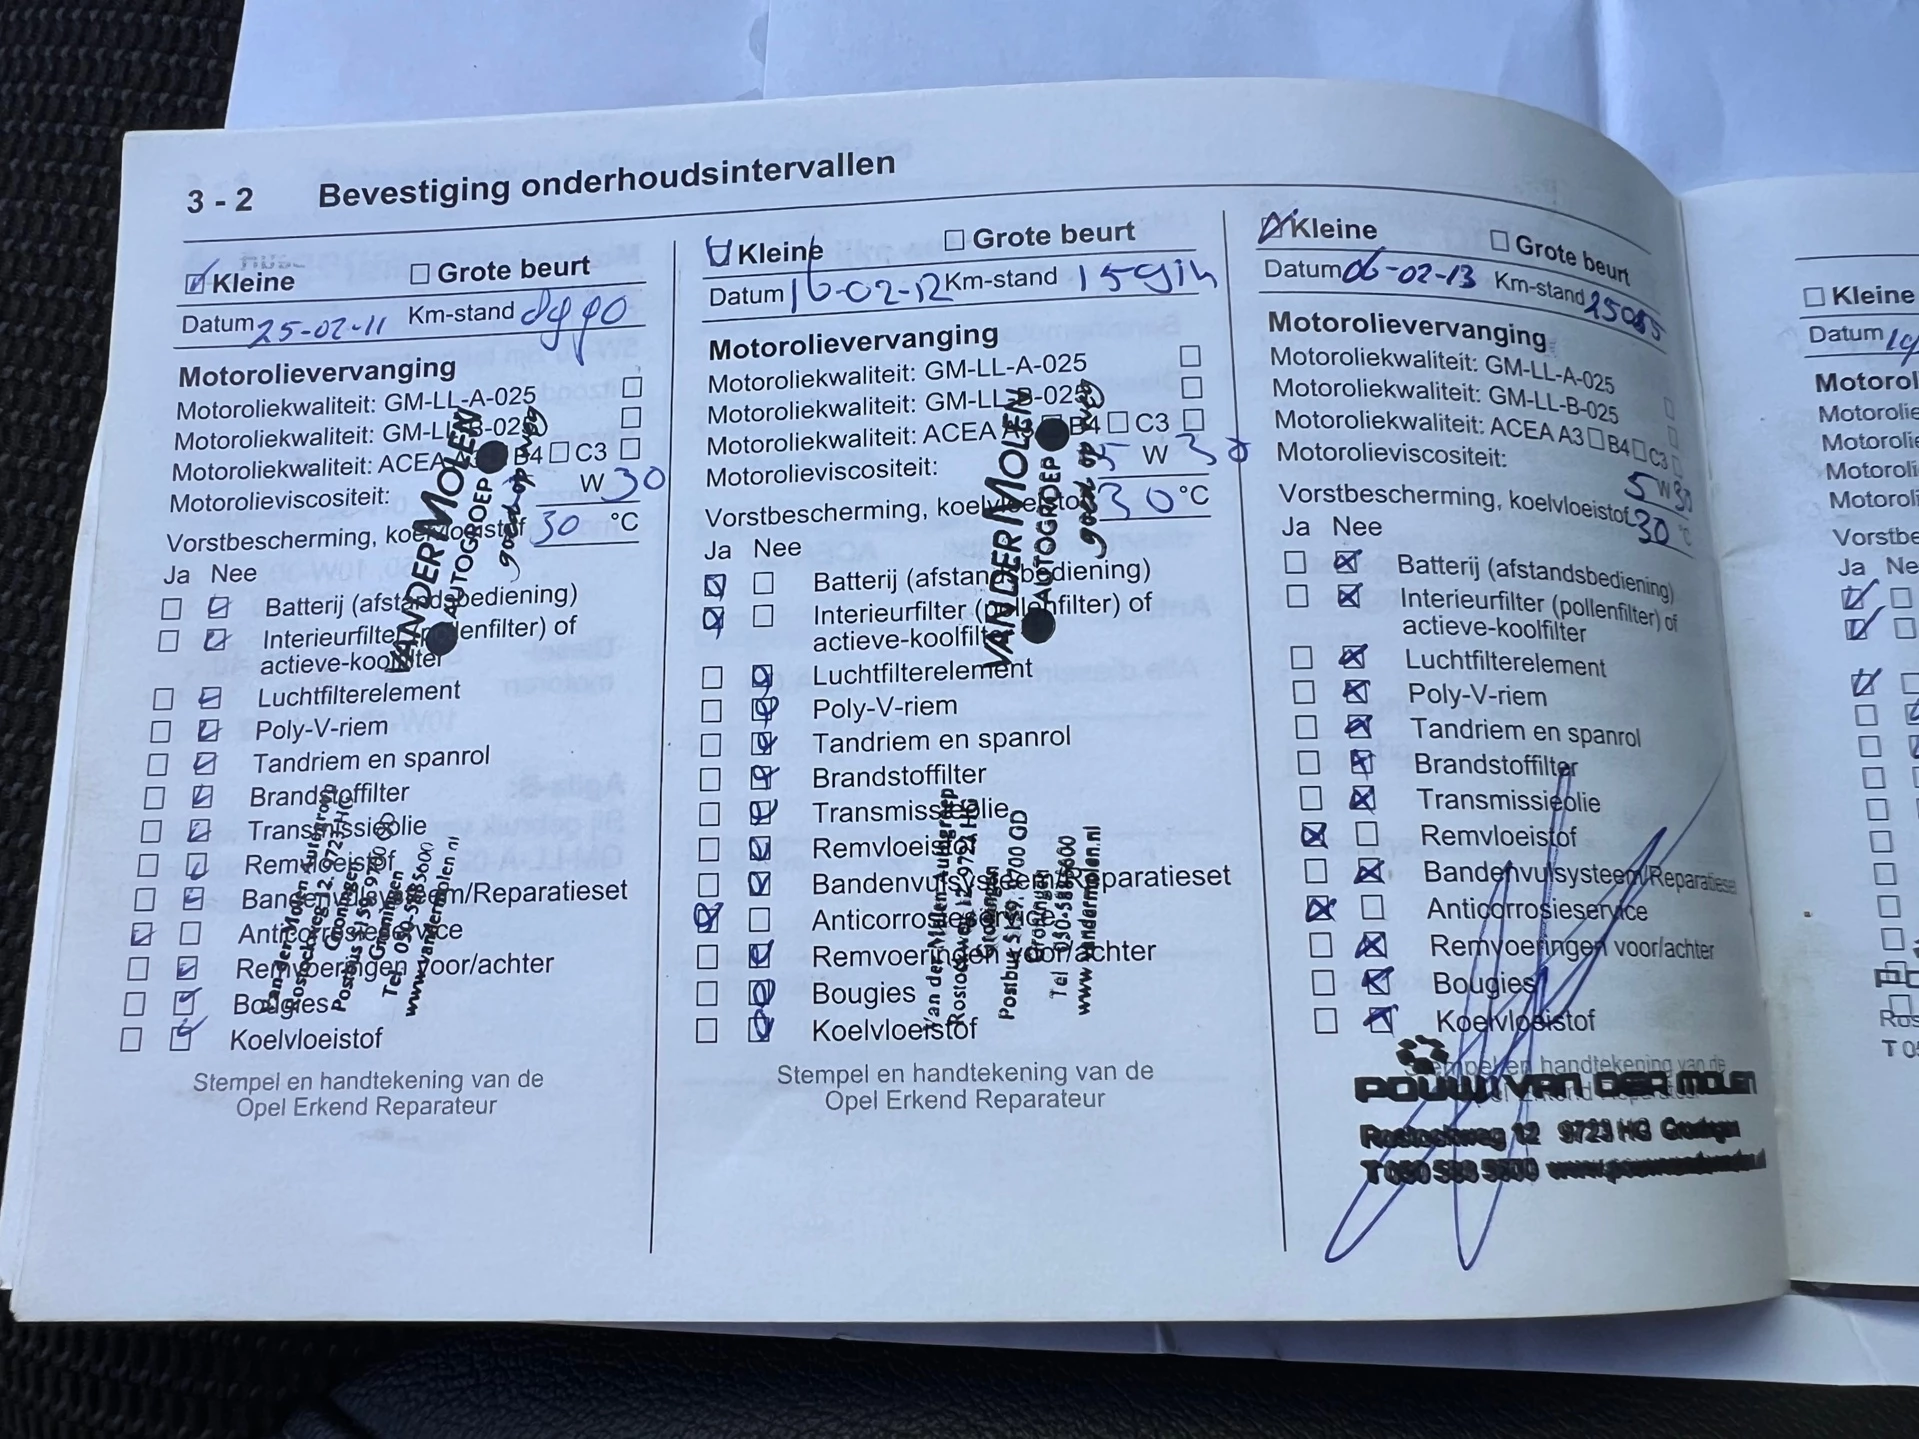 3 - 2 Bevestiging onderhoudsintervallen
Kleine Grote beurt
Datum 25-02-11 Km-stand
Motorolievervanging
Motoroliekwaliteit: GM-LL-A-025
Motoroliekwaliteit: GM-LL-B-025
Motoroliekwaliteit: ACEA B4 C3
Motorolieviscositeit: W 30
Vorstbescherming, koelvloeistof 30 °C
Ja Nee
Batterij (afstandsbediening)
Interieurfilter (pollenfilter) of
actieve-koolfilter
Luchtfilterelement
Poly-V-riem
Tandriem en spanrol
Brandstoffilter
Transmissieolie
Remvloeistof
Bandenvulsysteem/Reparatieset
Anticorrosieservice
Remvoeringen voor/achter
Bougies
Koelvloeistof
Stempel en handtekening van de
Opel Erkend Reparateur
VAN DER MOLEN
AUTOGROEP
goed op weg
Van der Molen Autogroep
Rostockweg 12, 9723 HG
Groningen
Postbus 5159, 9700 GD
Groningen
Tel. 050-5885600
www.vandermolen.nl
Kleine Grote beurt
Datum 16-02-12 Km-stand
Motorolievervanging
Motoroliekwaliteit: GM-LL-A-025
Motoroliekwaliteit: GM-LL-B-025
Motoroliekwaliteit: ACEA B4 C3
Motorolieviscositeit: 5 W 30
Vorstbescherming, koelvloeistof 30 °C
Ja Nee
Batterij (afstandsbediening)
Interieurfilter (pollenfilter) of
actieve-koolfilter
Luchtfilterelement
Poly-V-riem
Tandriem en spanrol
Brandstoffilter
Transmissieolie
Remvloeistof
Bandenvulsysteem/Reparatieset
Anticorrosieservice
Remvoeringen voor/achter
Bougies
Koelvloeistof
Stempel en handtekening van de
Opel Erkend Reparateur
VAN DER MOLEN
AUTOGROEP
goed op weg
Van der Molen Autogroep
Rostockweg 12, 9723 HG
Groningen
Postbus 5159, 9700 GD
Groningen
Tel 050-5885600
www.vandermolen.nl
Kleine Grote beurt
Datum 06-02-13 Km-stand
Motorolievervanging
Motoroliekwaliteit: GM-LL-A-025
Motoroliekwaliteit: GM-LL-B-025
Motoroliekwaliteit: ACEA A3 B4 C3
Motorolieviscositeit: 5 W 30
Vorstbescherming, koelvloeistof 30 °C
Ja Nee
Batterij (afstandsbediening)
Interieurfilter (pollenfilter) of
actieve-koolfilter
Luchtfilterelement
Poly-V-riem
Tandriem en spanrol
Brandstoffilter
Transmissieolie
Remvloeistof
Bandenvulsysteem/Reparatieset
Anticorrosieservice
Remvoeringen voor/achter
Bougies
Koelvloeistof
Stempel en handtekening van de
POUW VAN DER MOLEN
Rostockweg 12 9723 HG Groningen
T 050 588 5600
Kleine
Datum
Motorol
Motorolie
Motorolie
Motorolie
Motoroli
Vorstbe
Ja Ne
Ros
T 05